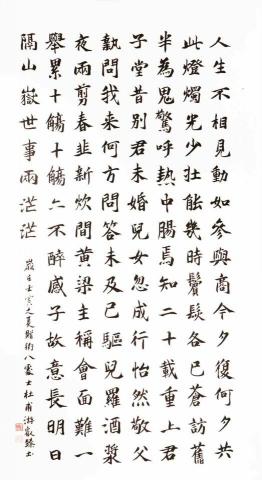 人生不相見動如參與商今夕復何夕共
此燈燭光少壯能幾時鬢髮各已蒼訪舊
半為鬼驚呼熱中腸焉知二十載重上君
子堂昔別君未婚兒女忽成行怡然敬父
執問我來何方問答未及已驅兒羅酒漿
夜雨剪春韭新炊間黃梁主稱會面難一
舉累十觴十觴亦不醉感子故意長明日
隔山嶽世事兩茫茫
歲在壬寅之夏贈衛八處士杜甫